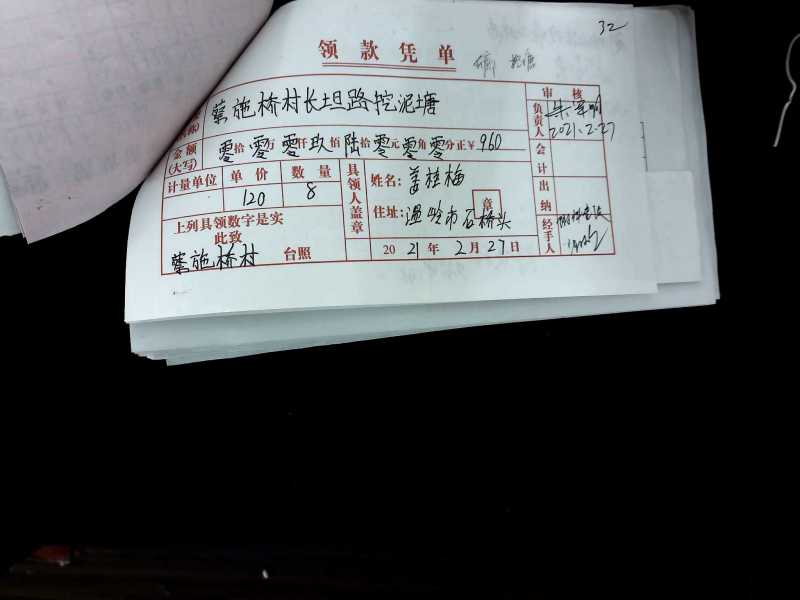 32
领款凭单
挖塘
施桥村长坦路挖泥塘
审核
金额(大写) 零拾零万零仟玖佰陆拾零元零角零分正¥ 960
负责人 2021.2.27
计量单位 单价 数量
120 8
具领人盖章
姓名: 姜桂梅
住址: 温岭市石桥头
章
会计
出纳
经手人
上列具领数字是实
此致
施桥村 台照
2021年2月27日